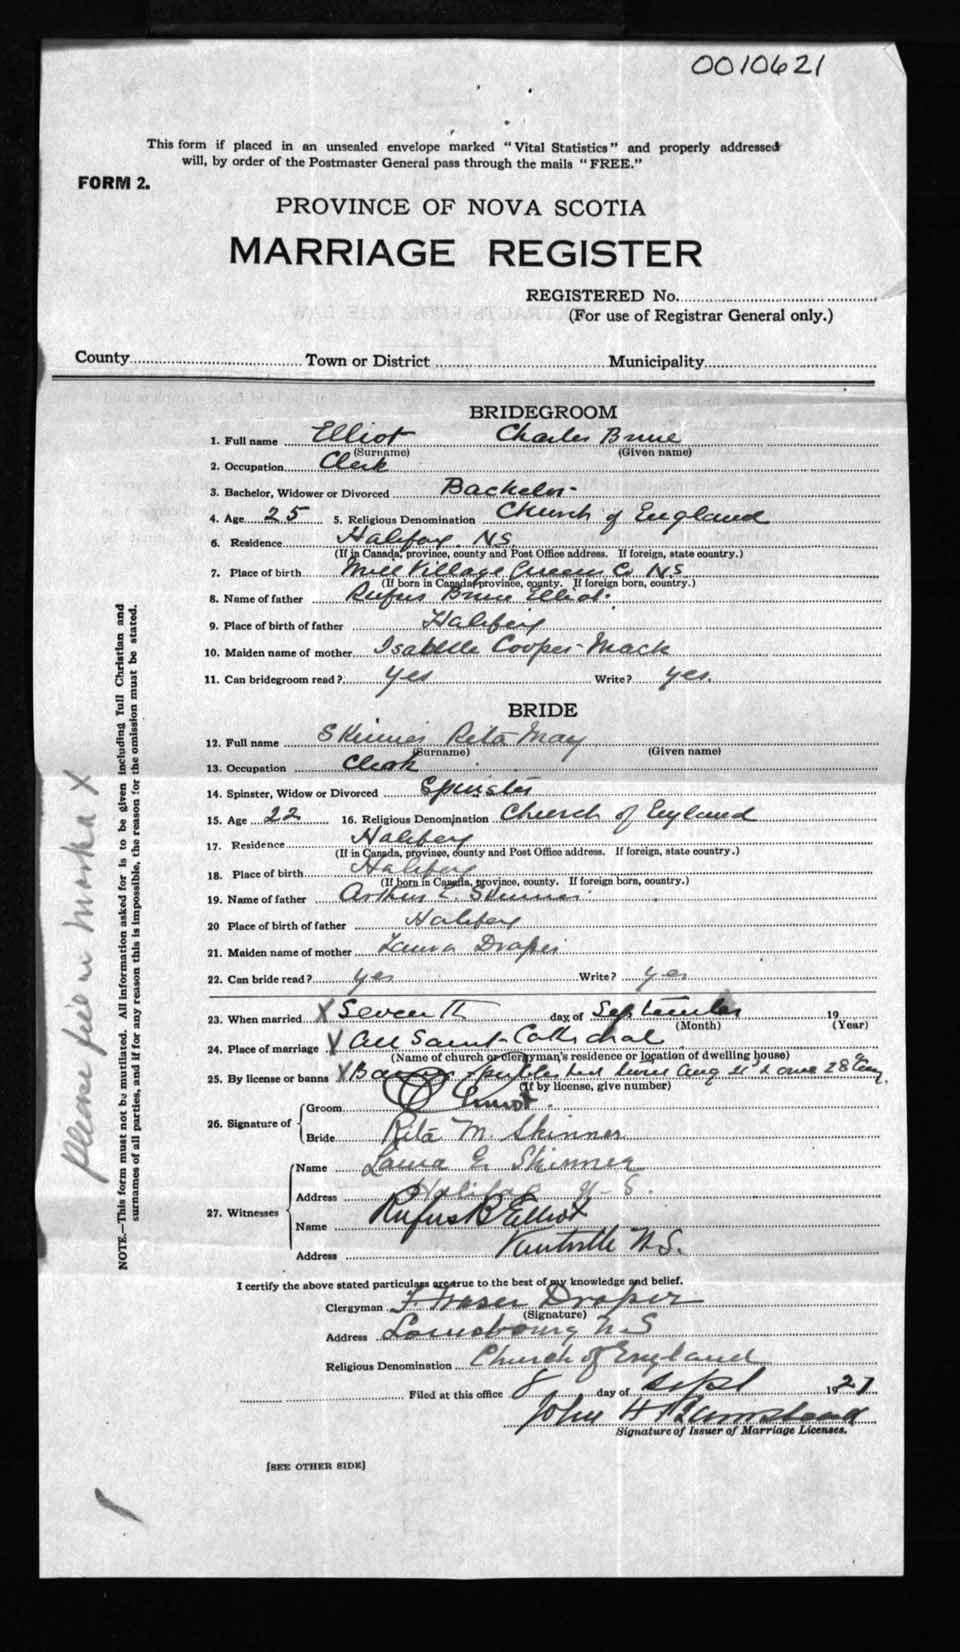 0010621
This form if placed in an unsealed envelope marked "Vital Statistics" and properly addressed
will, by order of the Postmaster General pass through the mails "FREE."
FORM 2.
PROVINCE OF NOVA SCOTIA
MARRIAGE REGISTER
REGISTERED No.
(For use of Registrar General only.)
County Town or District Municipality
BRIDEGROOM
1. Full name Elliot Charles Brune
(Surname) (Given name)
2. Occupation Clerk
3. Bachelor, Widower or Divorced Bachelor
4. Age 25 5. Religious Denomination Church of England
6. Residence Halifax N.S.
(If in Canada, province, county and Post Office address. If foreign, state country.)
7. Place of birth Mill Village Queens Co N.S.
(If born in Canada province, county. If foreign born, country.)
8. Name of father Rufus Brune Elliot
9. Place of birth of father Halifax
10. Maiden name of mother Isabelle Cooper-Mack
11. Can bridegroom read? yes Write? yes.
BRIDE
12. Full name Skinner Rita May
(Surname) (Given name)
13. Occupation Clerk
14. Spinster, Widow or Divorced Spinster
15. Age 22 16. Religious Denomination Church of England
17. Residence Halifax
(If in Canada, province, county and Post Office address. If foreign, state country.)
18. Place of birth Halifax
(If born in Canada, province, county. If foreign born, country.)
19. Name of father Arthur E. Skinner
20 Place of birth of father Halifax
21. Maiden name of mother Laura Draper
22. Can bride read? yes Write? yes
23. When married X Seventh day of September 19
(Month) (Year)
24. Place of marriage X All Saints Cathedral
(Name of church or clergyman's residence or location of dwelling house)
25. By license or banns X Banns Aug 28
(If by license, give number)
26. Signature of Groom Elliot
Bride Rita M. Skinner
27. Witnesses Name Laura E. Skinner
Address Halifax N-S.
Name Rufus B Elliot
Address Kentville N.S.
I certify the above stated particulars are true to the best of my knowledge and belief.
Clergyman T. Fraser Draper
(Signature)
Address Louisbourg N S
Religious Denomination Church of England
Filed at this office 8 day of Sept 1921
John H
Signature of Issuer of Marriage Licenses.
[SEE OTHER SIDE]
NOTE.—This form must not be mutilated. All information asked for is to be given including full Christian and
surnames of all parties, and if for any reason this is impossible, the reason for the omission must be stated.
please fill in marks X